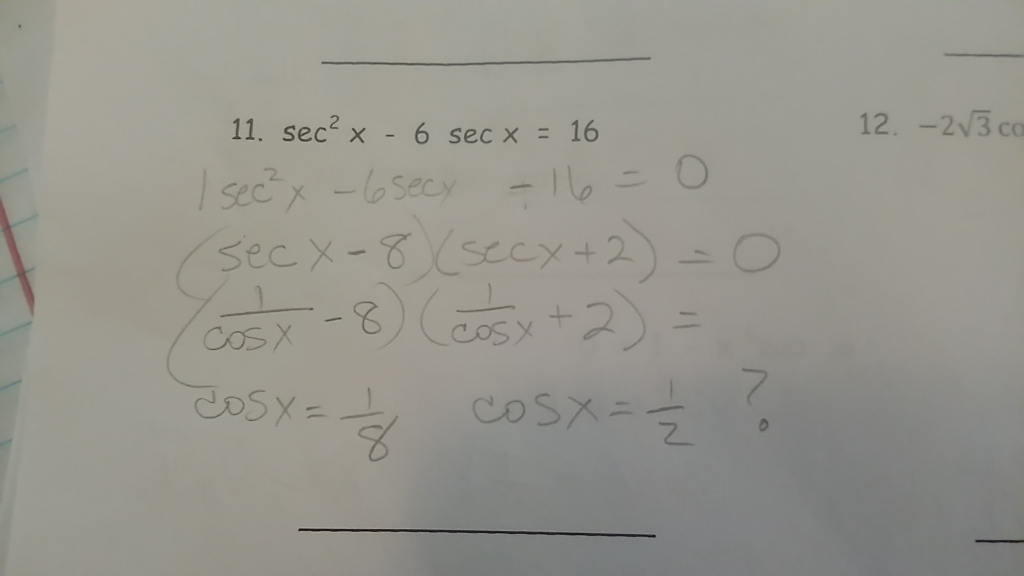 11. sec² x - 6 sec x = 16
12. -2√3 co
1 sec²x - 6 secx - 16 = 0
(secx - 8)(secx + 2) = 0
(1/cosx - 8)(1/cosx + 2) =
cosx = 1/8 cosx = 1/2 ?